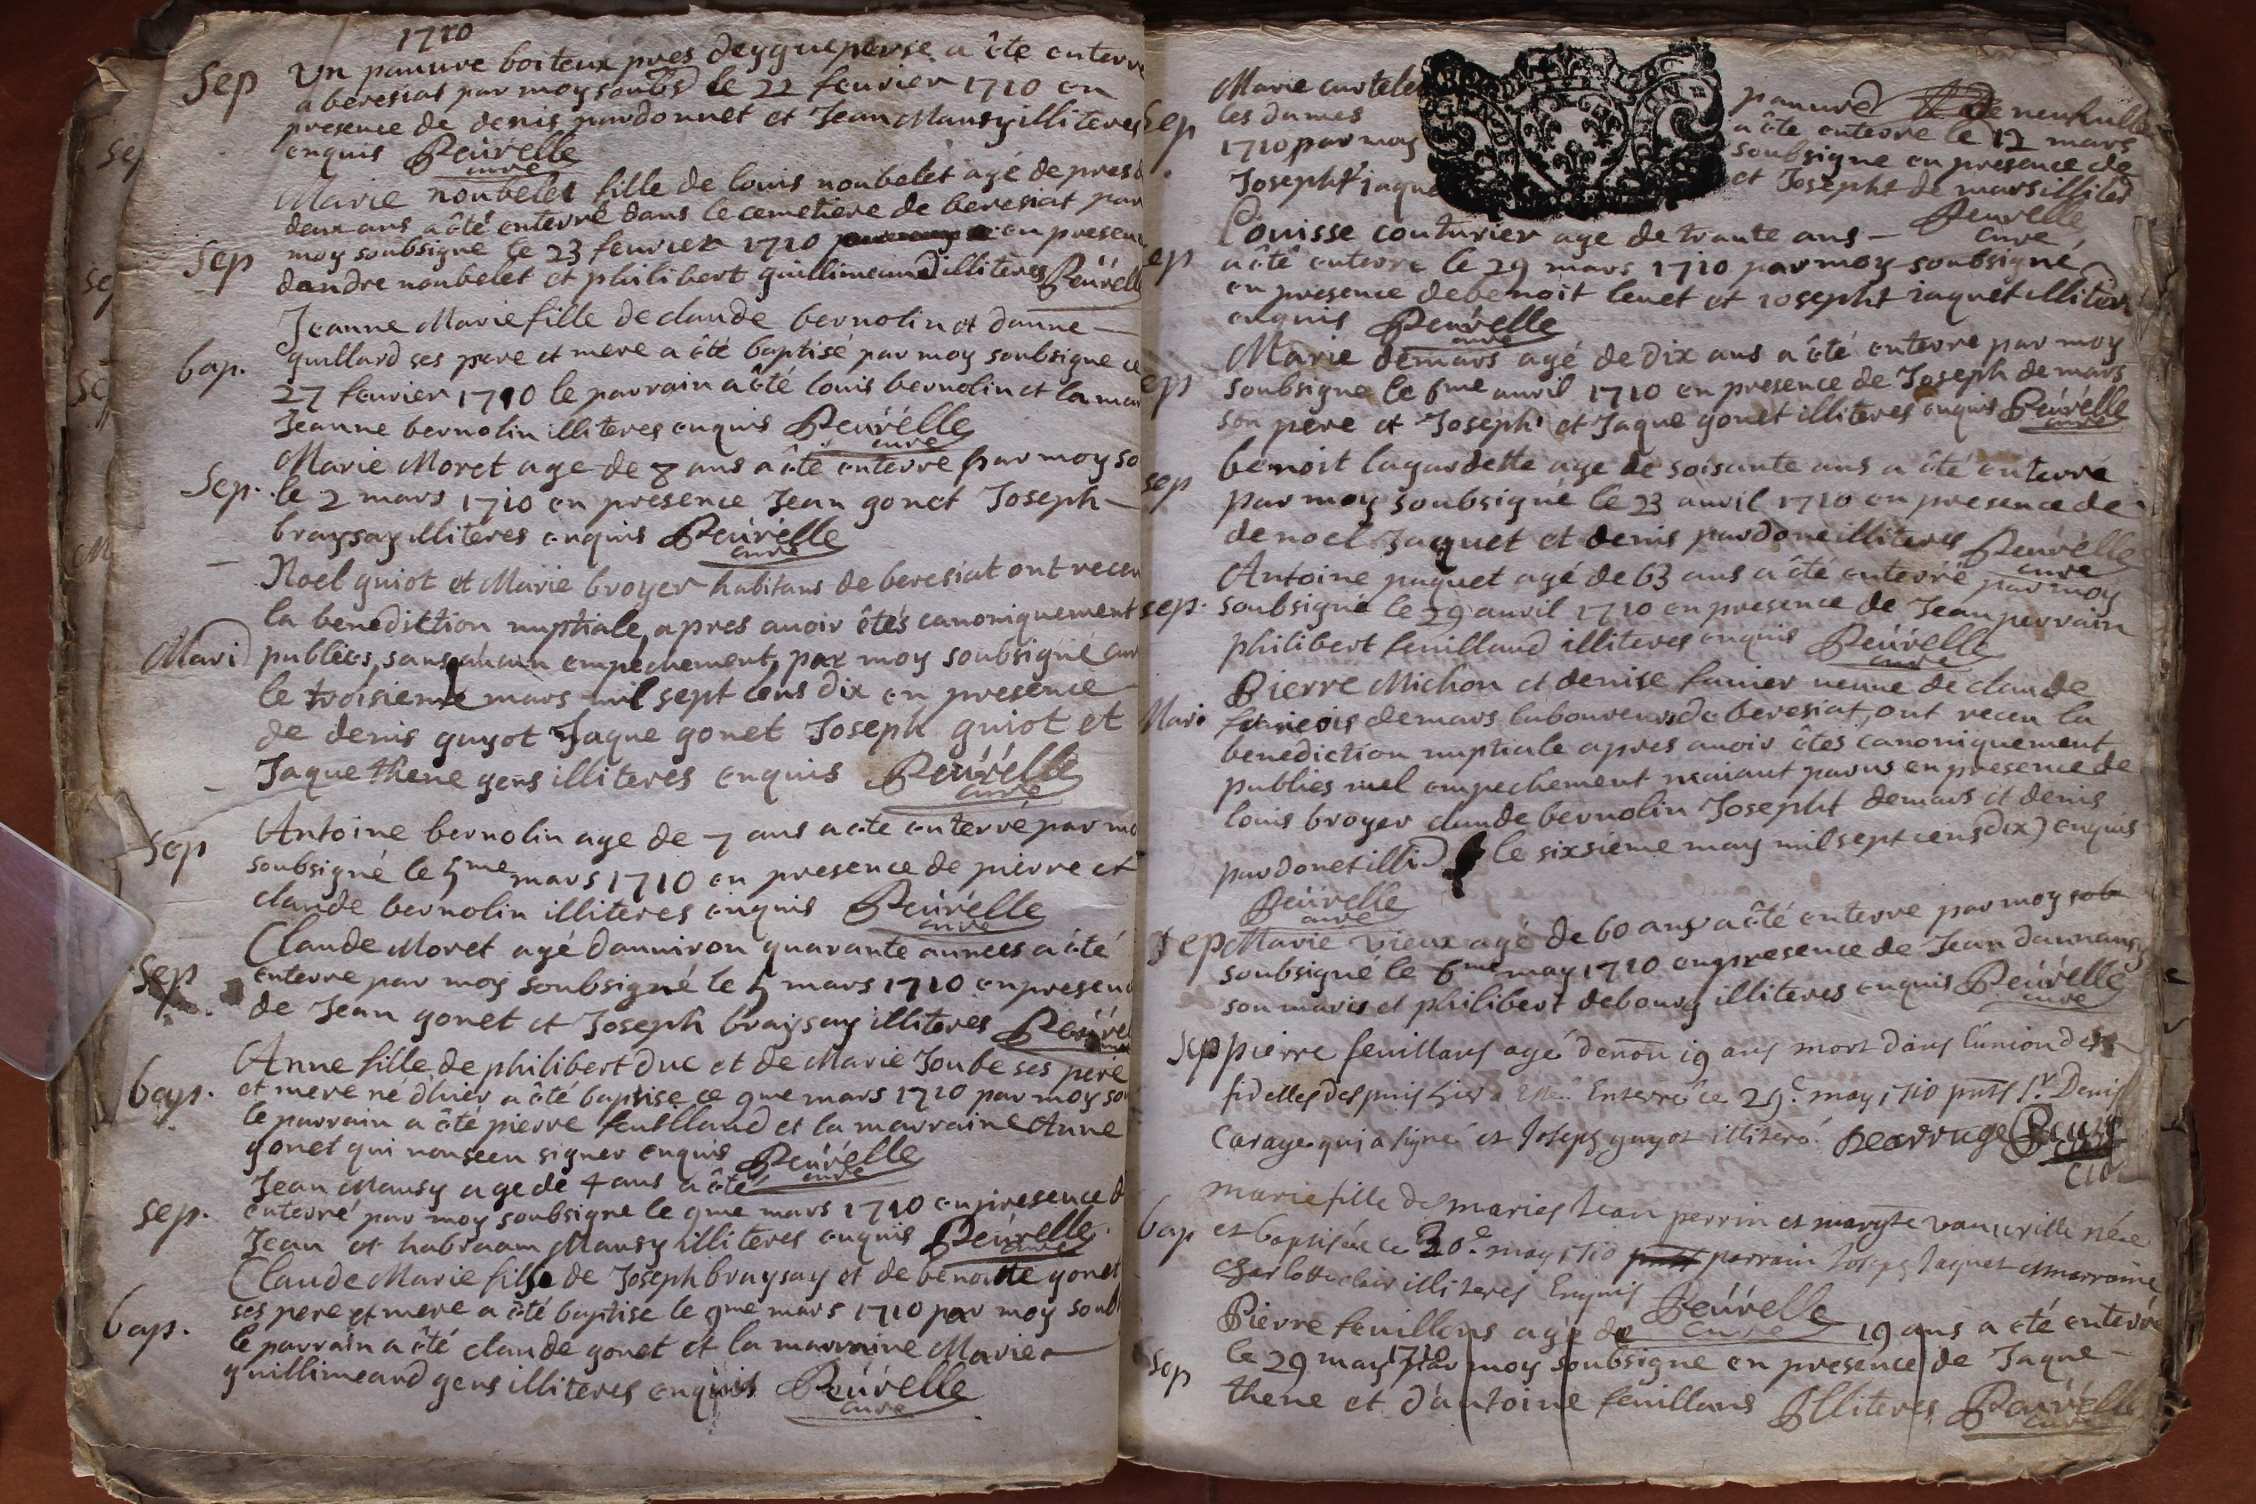 1710
Sep Un pauvre boiteux pres deygueperse a ôte enterre
a beresiat par moy soubs le 22 feurier 1710 en
presence de denis pardonnet et Jean Mausy illiteres
enquis Peúrelle
curé
Marie noubelet fille de louis noubelet agé de pres d
deux ans a ôté enterré dans le cemetiere de beresiat par
Sep moy soubsigne le 23 feurier 1710 en presen
dandre noubelet et philibert guillimeaud illiteres Peúrelle
Jeanne Marie fille de claude bernolin et danne
bap. guillard ses pere et mere a ôté baptisé par moy soubsigne ce
27 feurier 1710 le parrain a ôté louis bernolin et la mar
Jeanne bernolin illiteres enquis Peúrélle
curé
Marie Moret age de 8 ans a ôté enterre par moy so
Sep. le 2 mars 1710 en presence Jean gonet Joseph
braysay illiteres enquis Peúrélle
curé
Noel guiot et Marie broyer habitans de beresiat ont receu
la benediction nuptiale apres auoir ôtés canoniquement
Mari publiés, sans aucun empechement, par moy soubsigné cur
le troisieme mars mil sept cens dix en presence
de denis guyot Jaque gonet Joseph guiot et
Jaque thene gens illiteres enquis Peúrélle
curé
Sep Antoine bernolin age de 7 ans a ote enterré par mo
soubsigné le 5me mars 1710 en presence de pierre et
claude bernolin illiteres enquis Peúrélle
curé
Claude Moret agé danuiron quarante années a ôté
Sep enterre par moy soubsigné le 5 mars 1710 en presen
de Jean gonet et Joseph braysay illiteres Peúrel
Anne fille de philibert duc et de Marie Joube ses pere
bap. et mere né dhier a ôté baptise ce 9me mars 1710 par moy so
le parrain a ôté pierre feuilland et la marraine Anne
gonet qui nonsceu signer enquis Peúrélle
curé
Jean Mausy age de 4 ans a ôté
sep. enterré par moy soubsigne le 9me mars 1710 en presence d
Jean et habraam Mausy illiteres enquis Peúrelle
curé
Claude Marie fille de Joseph braysay et de benoitte gonet
bap. ses pere et mere a ôté baptise le 9me mars 1710 par moy soub
le parrain a ôté claude gonet et la marraine Marie
guillimeaud gens illiteres enquis Peúrélle
curé
Marie curtelet pauure de neuuille
Sep les dames a ôte enterre le 12 mars
1710 par moy soubsigne en presence de
Josepht jaque et Josepht de mars illiter
Peurelle
curé
Louisse couturier age de trante ans
sep a ôté enterre le 29 mars 1710 par moy soubsigné
en presence de benoit leuet et iosepht iaquet illiter
enquis Peúrelle
curé
Marie demars agé de dix ans a ôté enterre par moy
sep soubsigne le 6me auril 1710 en presence de Joseph de mars
son père et Joseph et Jaque gonet illiteres enquis Peúrélle
curé
benoit lagardette age de soisante ans a ôté enterré
sep par moy soubsigné le 23 auril 1710 en presence de
de noel Jaquet et denis pardone illiteres Peúrélle
curé
Antoine paquet agé de 63 ans a ôté enterré par moy
sep. soubsigné le 29 auril 1710 en presence de Jean perrain
philibert feuilland illiteres enquis Peúrélle
curé
Pierre Michon et denise faurier ueuue de claude
Mari demars laboureurs de beresiat, ont receu la
benediction nuptiale apres auoir ôtés canoniquement
publies nul empechement naiant parus en presence de
louis broyer claude bernolin Josepht demars et denis
pardonet illi le sixsieme may mil sept cens dix enquis
Peúrelle
curé
Sep Marie vieux agé de 60 ans a ôté enterre par moy sob
soubsigné le 6me may 1710 en presence de Jean daunans
son maris et philibert debourg illiteres enquis Peúrélle
curé
Sep pierre feuillans agé denon 19 ans mort dans lunion des
fidelles despuis hier a esté Enterré ce 29e may 1710 pnts sr. Denis
Carage qui a signé et Joseph guyot illiteré.
marie fille des maries Jean perrin et margte née
bap et baptisée ce 30e may 1710 parrain Joseph Jaquet et marraine
Charlotte clair illiteres Enquis Peúrélle
curé
Pierre feuillans agé de 19 ans a oté enterré
Sep le 29 may 1710 par moy soubsigne en presence de Jaque
thene et d'antoine feuillans Illiteres Peúrélle
curé